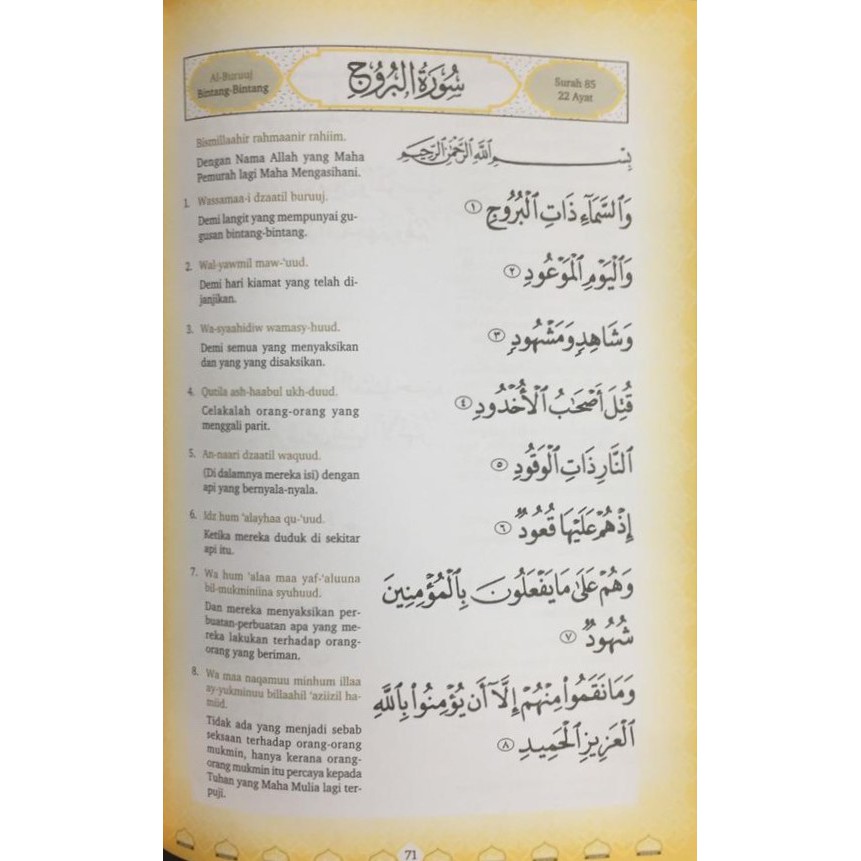 Al-Buruuj
Bintang-Bintang
سُورَةُ الْبُرُوجِ
Surah 85
22 Ayat
Bismillaahir rahmaanir rahiim.
Dengan Nama Allah yang Maha
Pemurah lagi Maha Mengasihani.
بِسْمِ ٱللَّهِ ٱلرَّحْمَٰنِ ٱلرَّحِيمِ
1. Wassamaa-i dzaatil buruuj.
Demi langit yang mempunyai gu-
gusan bintang-bintang.
وَٱلسَّمَآءِ ذَاتِ ٱلْبُرُوجِ ١
2. Wal-yawmil maw-'uud.
Demi hari kiamat yang telah di-
janjikan.
وَٱلْيَوْمِ ٱلْمَوْعُودِ ٢
3. Wa-syaahidiw wamasy-huud.
Demi semua yang menyaksikan
dan yang yang disaksikan.
وَشَاهِدٍ وَمَشْهُودٍ ٣
4. Qutila ash-haabul ukh-duud.
Celakalah orang-orang yang
menggali parit.
قُتِلَ أَصْحَٰبُ ٱلْأُخْدُودِ ٤
5. An-naari dzaatil waquud.
(Di dalamnya mereka isi) dengan
api yang bernyala-nyala.
ٱلنَّارِ ذَاتِ ٱلْوَقُودِ ٥
6. Idz hum 'alayhaa qu-'uud.
Ketika mereka duduk di sekitar
api itu.
إِذْ هُمْ عَلَيْهَا قُعُودٌ ٦
7. Wa hum 'alaa maa yaf-'aluuna
bil-mukminiina syuhuud.
Dan mereka menyaksikan per-
buatan-perbuatan apa yang me-
reka lakukan terhadap orang-
orang yang beriman.
وَهُمْ عَلَىٰ مَا يَفْعَلُونَ بِٱلْمُؤْمِنِينَ
شُهُودٌ ٧
8. Wa maa naqamuu minhum illaa
ay-yukminuu billaahil 'aziizil ha-
miid.
Tidak ada yang menjadi sebab
seksaan terhadap orang-orang
mukmin, hanya kerana orang-
orang mukmin itu percaya kepada
Tuhan yang Maha Mulia lagi ter-
puji.
وَمَا نَقَمُوا۟ مِنْهُمْ إِلَّآ أَن يُؤْمِنُوا۟ بِٱللَّهِ
ٱلْعَزِيزِ ٱلْحَمِيدِ ٨
71